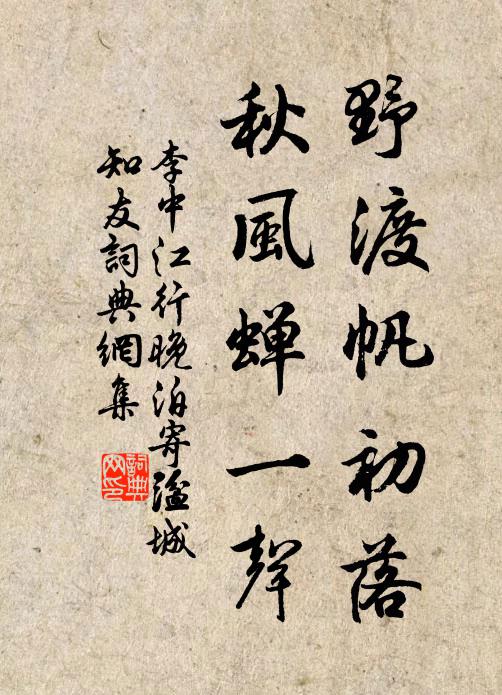 野渡帆初落
秋風蟬一聲
李中江行晚泊寄湓城
知友詞典網集
詞典
网印